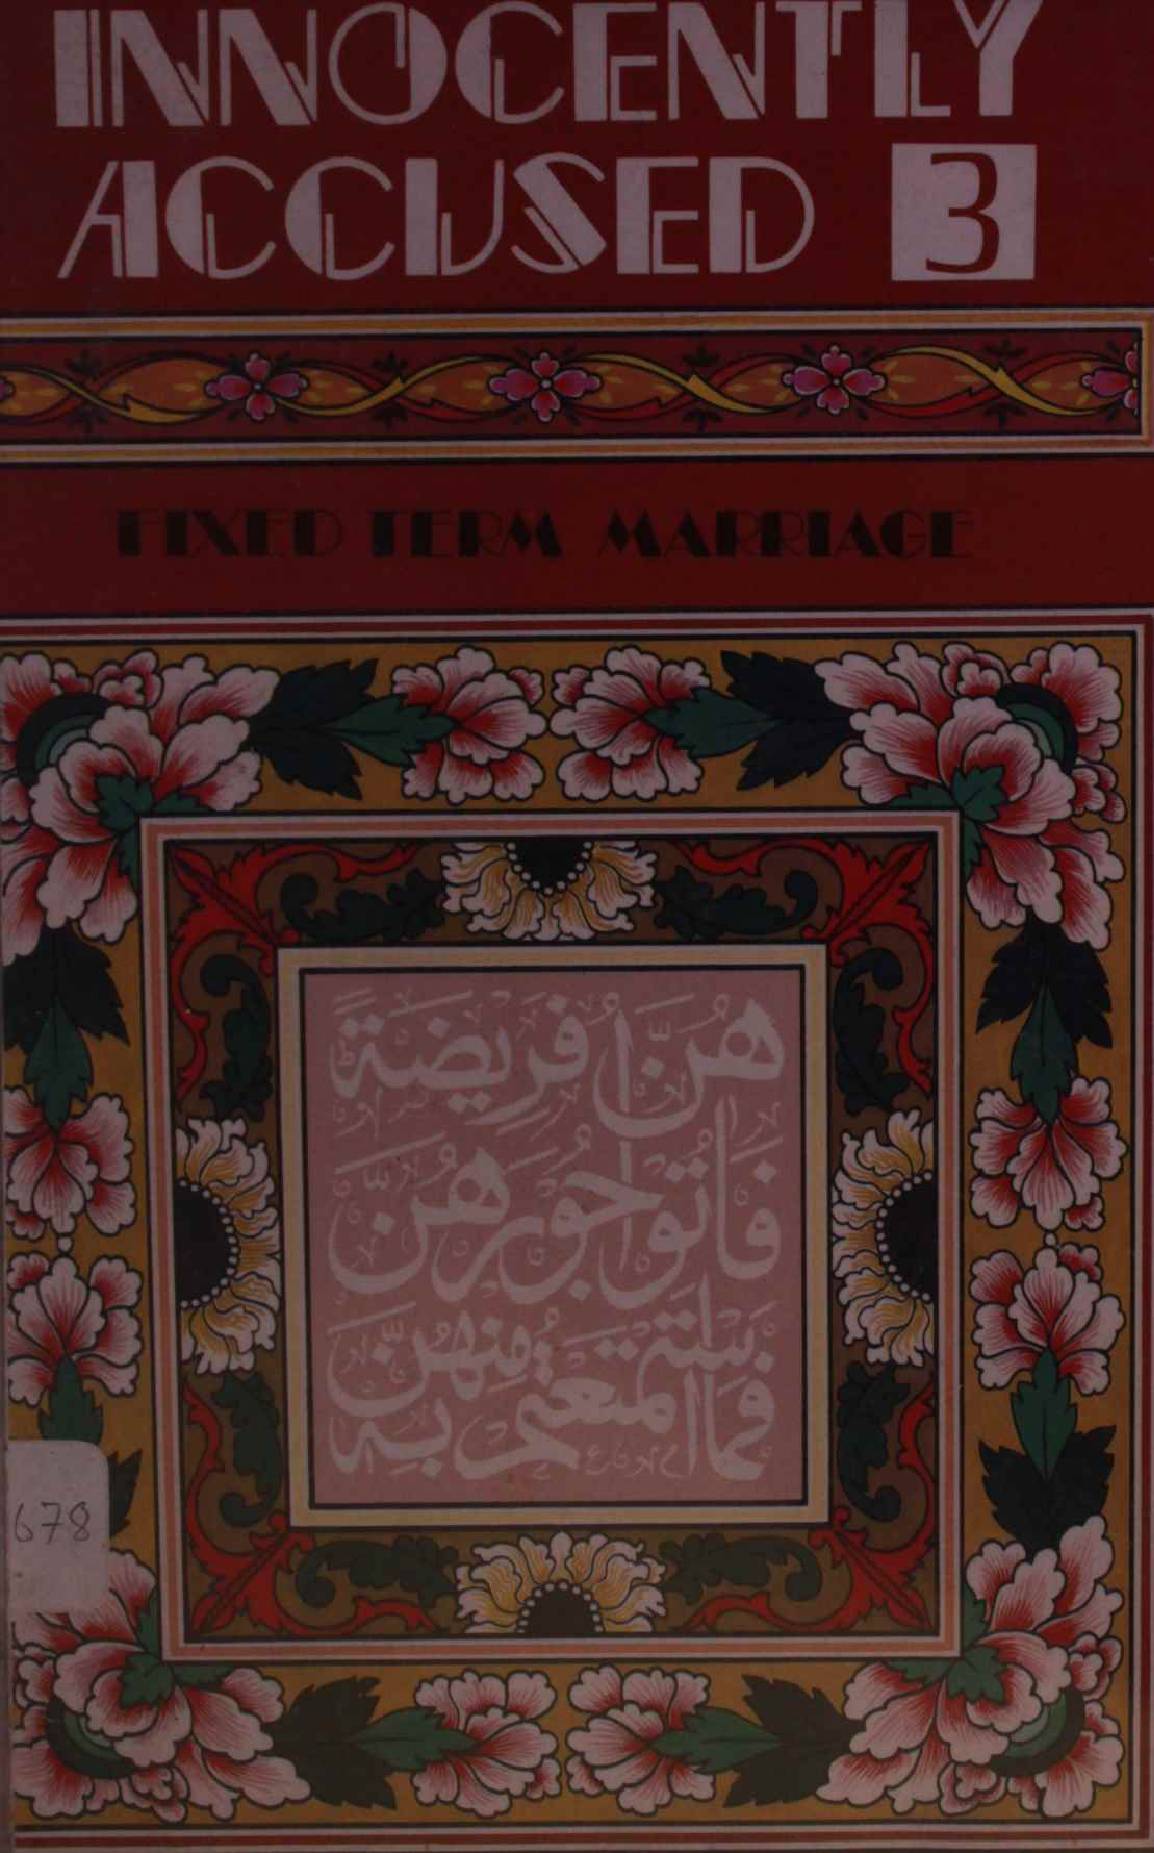 INNOCENTLY
ACCUSED 3
FIXED TERM MARRIAGE
فَمَا اسْتَمْتَعْتُمْ بِهِ مِنْهُنَّ
فَاتُوهُنَّ اُجُورَهُنَّ
فَرِيضَةً
678